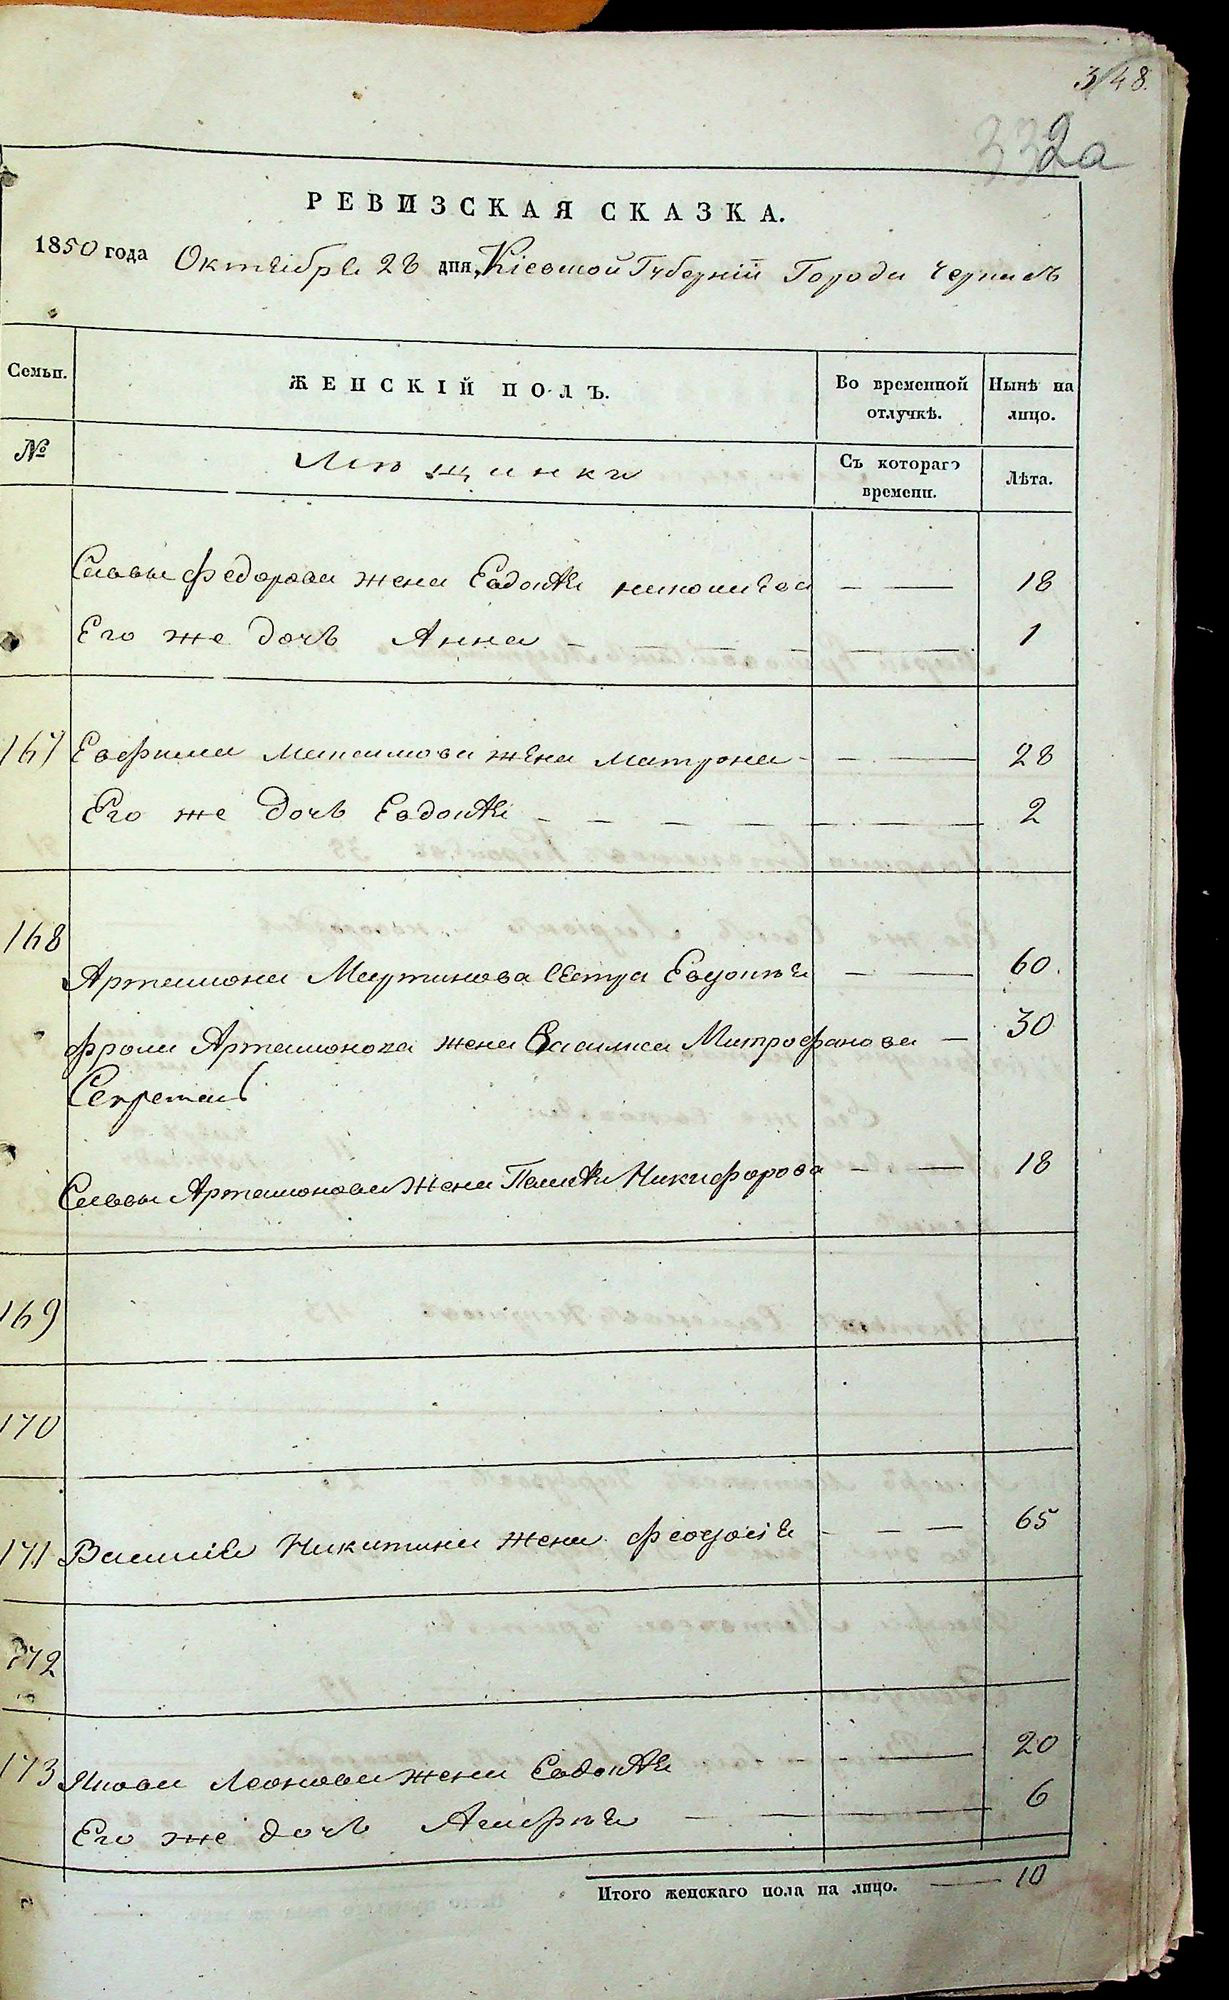 348.
332а
РЕВИЗСКАЯ СКАЗКА.
1850 года Октября 28 дня, Кіевской Губерніи Города Черкасъ
Семьи. ЖЕНСКІЙ ПОЛЪ. Во временной отлучкѣ. Нынѣ на лицо.
№ Мѣщинки Съ котораго времени. Лѣта.
Савы Федорова жена Евдокія — — 18
Его же дочь Анна — — — — — 1
167 Евфима Максимова жена Матрона — — — 28
Его же дочь Евдокія — — — — — — 2
168
Артамона Мартинова Сестра Евдокѣя — — 60.
Фрола Артамонова жена Василиса Митрофанова — 30
Савы Артамонова жена Никифорова — — 18
169
170
171 Василія Никитина жена Феодосія — — — 65
172
173 Якова Леонова жена Евдокія — — 20
Его же дочь — — — — 6
Итого женскаго пола на лицо. — 10